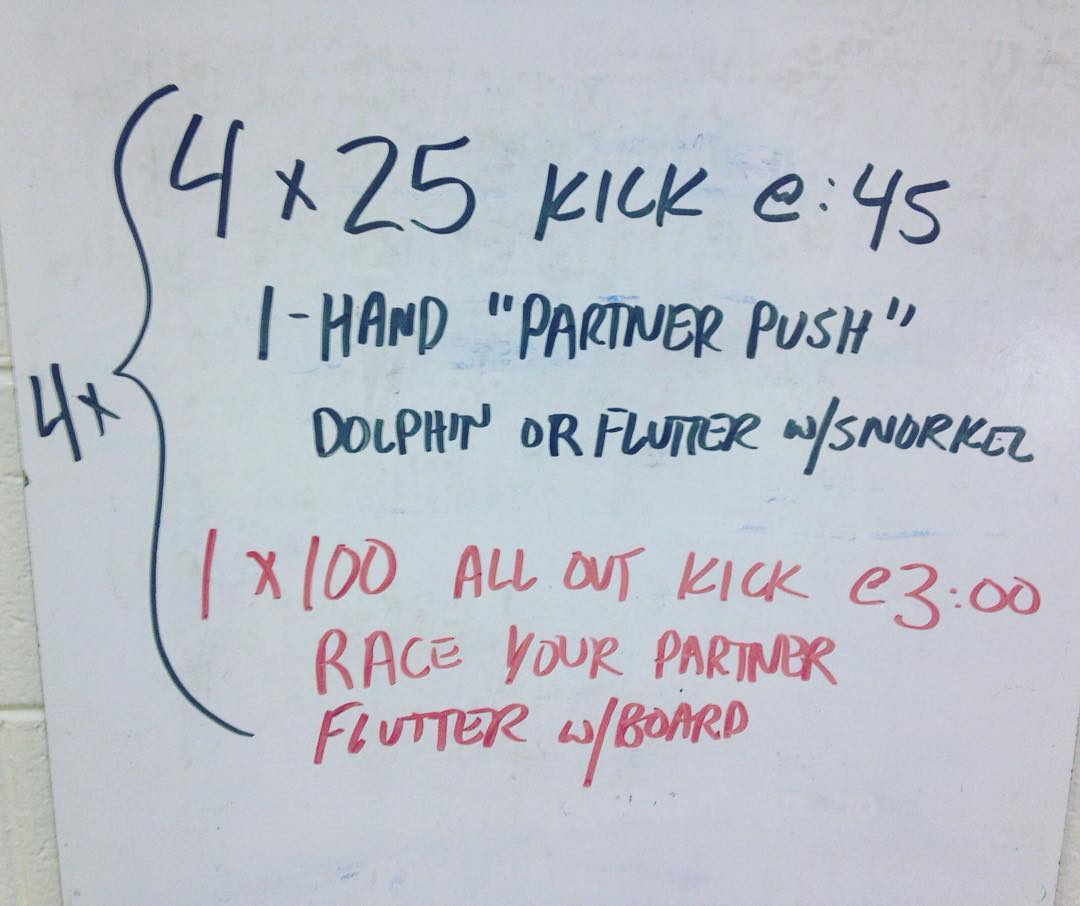 4 x 25 KICK @ :45
1-HAND "PARTNER PUSH"
DOLPHIN OR FLUTTER w/SNORKEL
4x
1 x 100 ALL OUT KICK @ 3:00
RACE YOUR PARTNER
FLUTTER w/BOARD